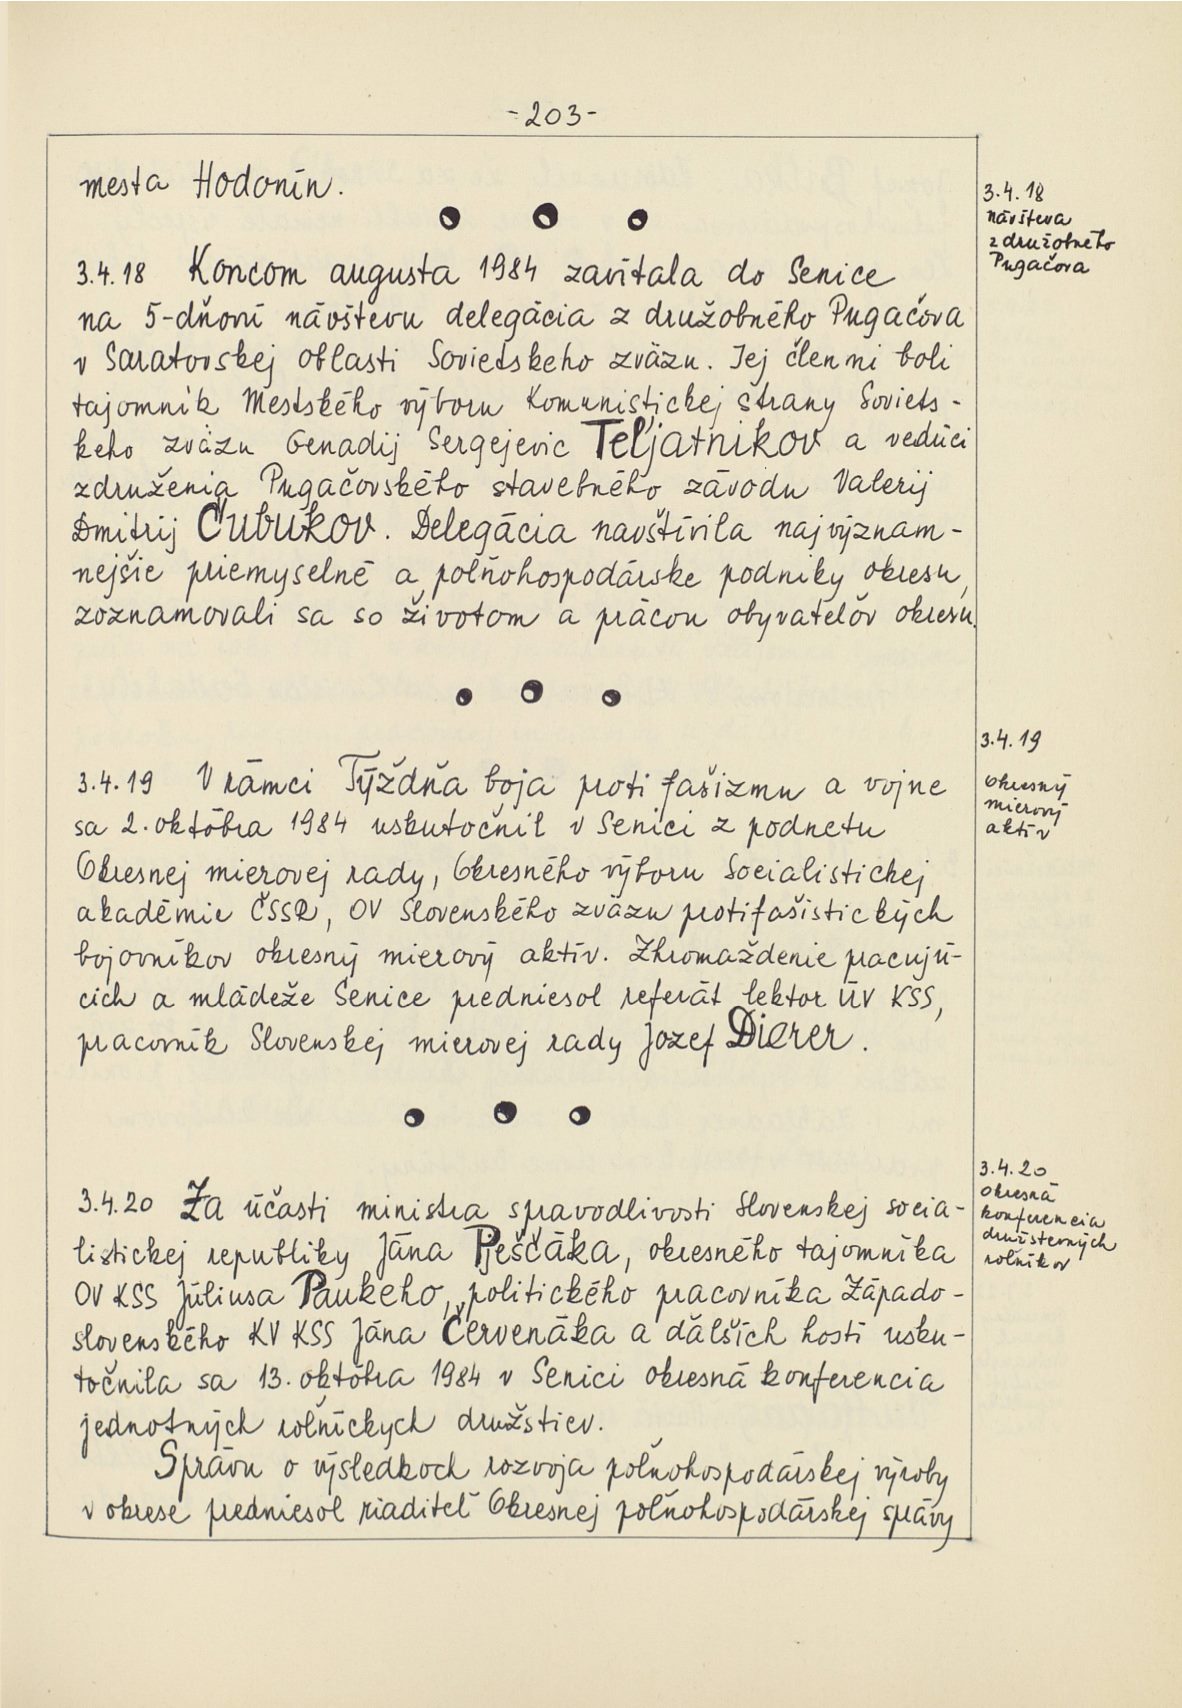 -203-
mesta Hodonín.
3.4.18
návšteva
z družobného
Pugačova
3.4.18 Koncom augusta 1984 zavítala do Senice
na 5-dňovú návštevu delegácia z družobného Pugačova
v Saratovskej oblasti Sovietskeho zväzu. Jej členmi boli
tajomník Mestského výboru Komunistickej strany Soviets-
keho zväzu Genadij Sergejevic Teľjatnikov a vedúci
združenia Pugačovského stavebného závodu Valerij
Dmitrij Čubukov. Delegácia navštívila najvýznam-
nejšie priemyselné a poľnohospodárske podniky okresu,
zoznamovali sa so životom a prácou obyvateľov okresu.
3.4.19
Okresný
mierový
aktív
3.4.19 V rámci Týždňa boja proti fašizmu a vojne
sa 2. októbra 1984 uskutočnil v Senici z podnetu
Okresnej mierovej rady, Okresného výboru Socialistickej
akadémie ČSSR, OV Slovenského zväzu protifašistických
bojovníkov okresný mierový aktív. Zhromaždenie pracujú-
cich a mládeže Senice predniesol referát lektor ÚV KSS,
pracovník Slovenskej mierovej rady Jozef Dierer.
3.4.20
okresná
konferencia
družstevných
roľníkov
3.4.20 Za účasti ministra spravodlivosti Slovenskej socia-
listickej republiky Jána Pješčáka, okresného tajomníka
OV KSS Júliusa Paukeho, politického pracovníka Západo-
slovenského KV KSS Jána Červenáka a ďalších hostí usku-
točnila sa 13. októbra 1984 v Senici okresná konferencia
jednotných roľníckych družstiev.
Správu o výsledkoch rozvoja poľnohospodárskej výroby
v okrese predniesol riaditeľ Okresnej poľnohospodárskej správy